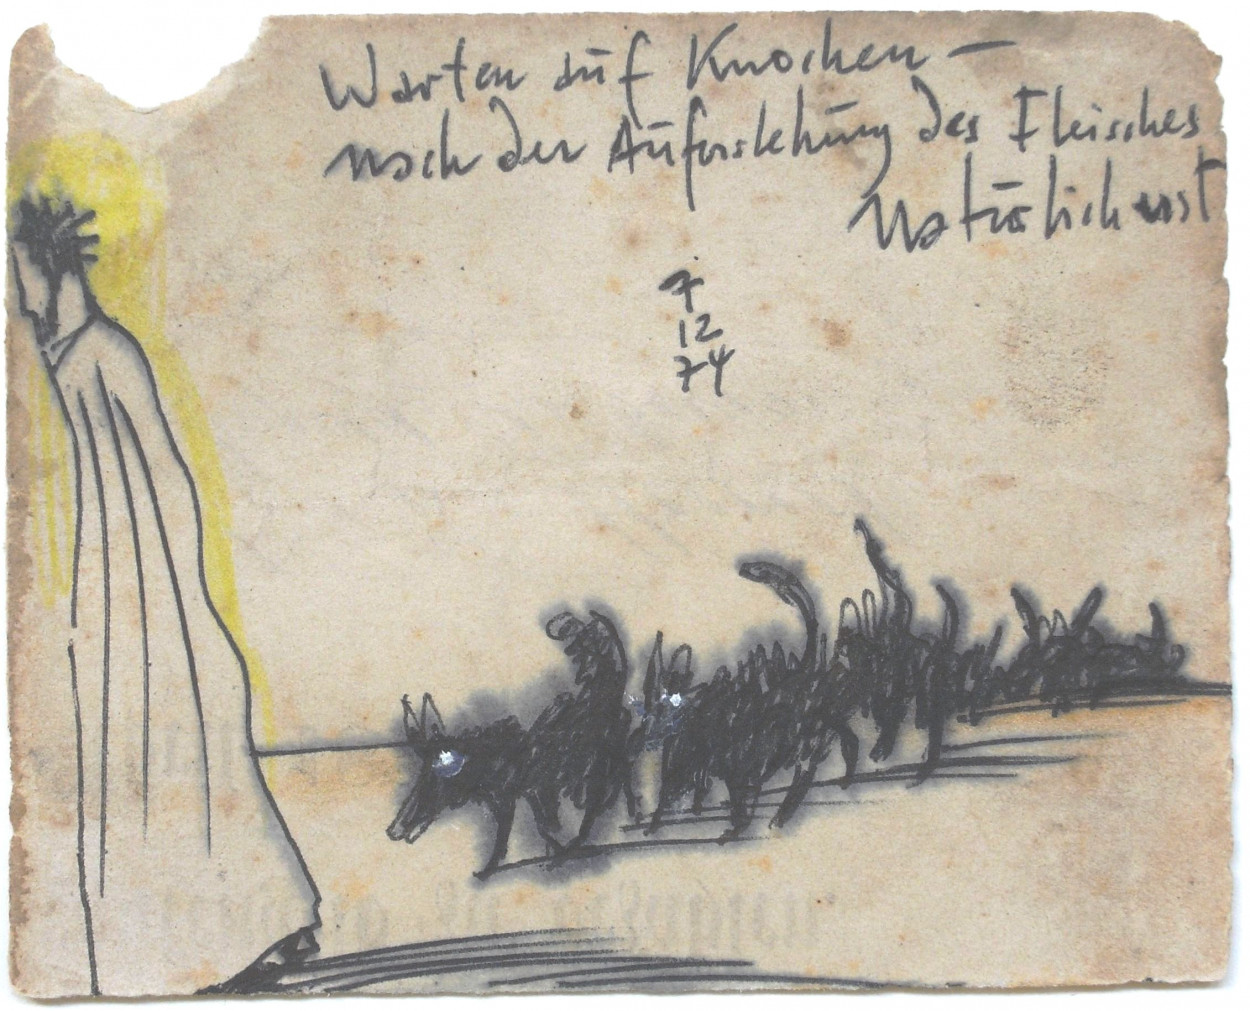 Warten auf Knochen –
nach der Auferstehung des Fleisches
Natürlich erst
7
12
74